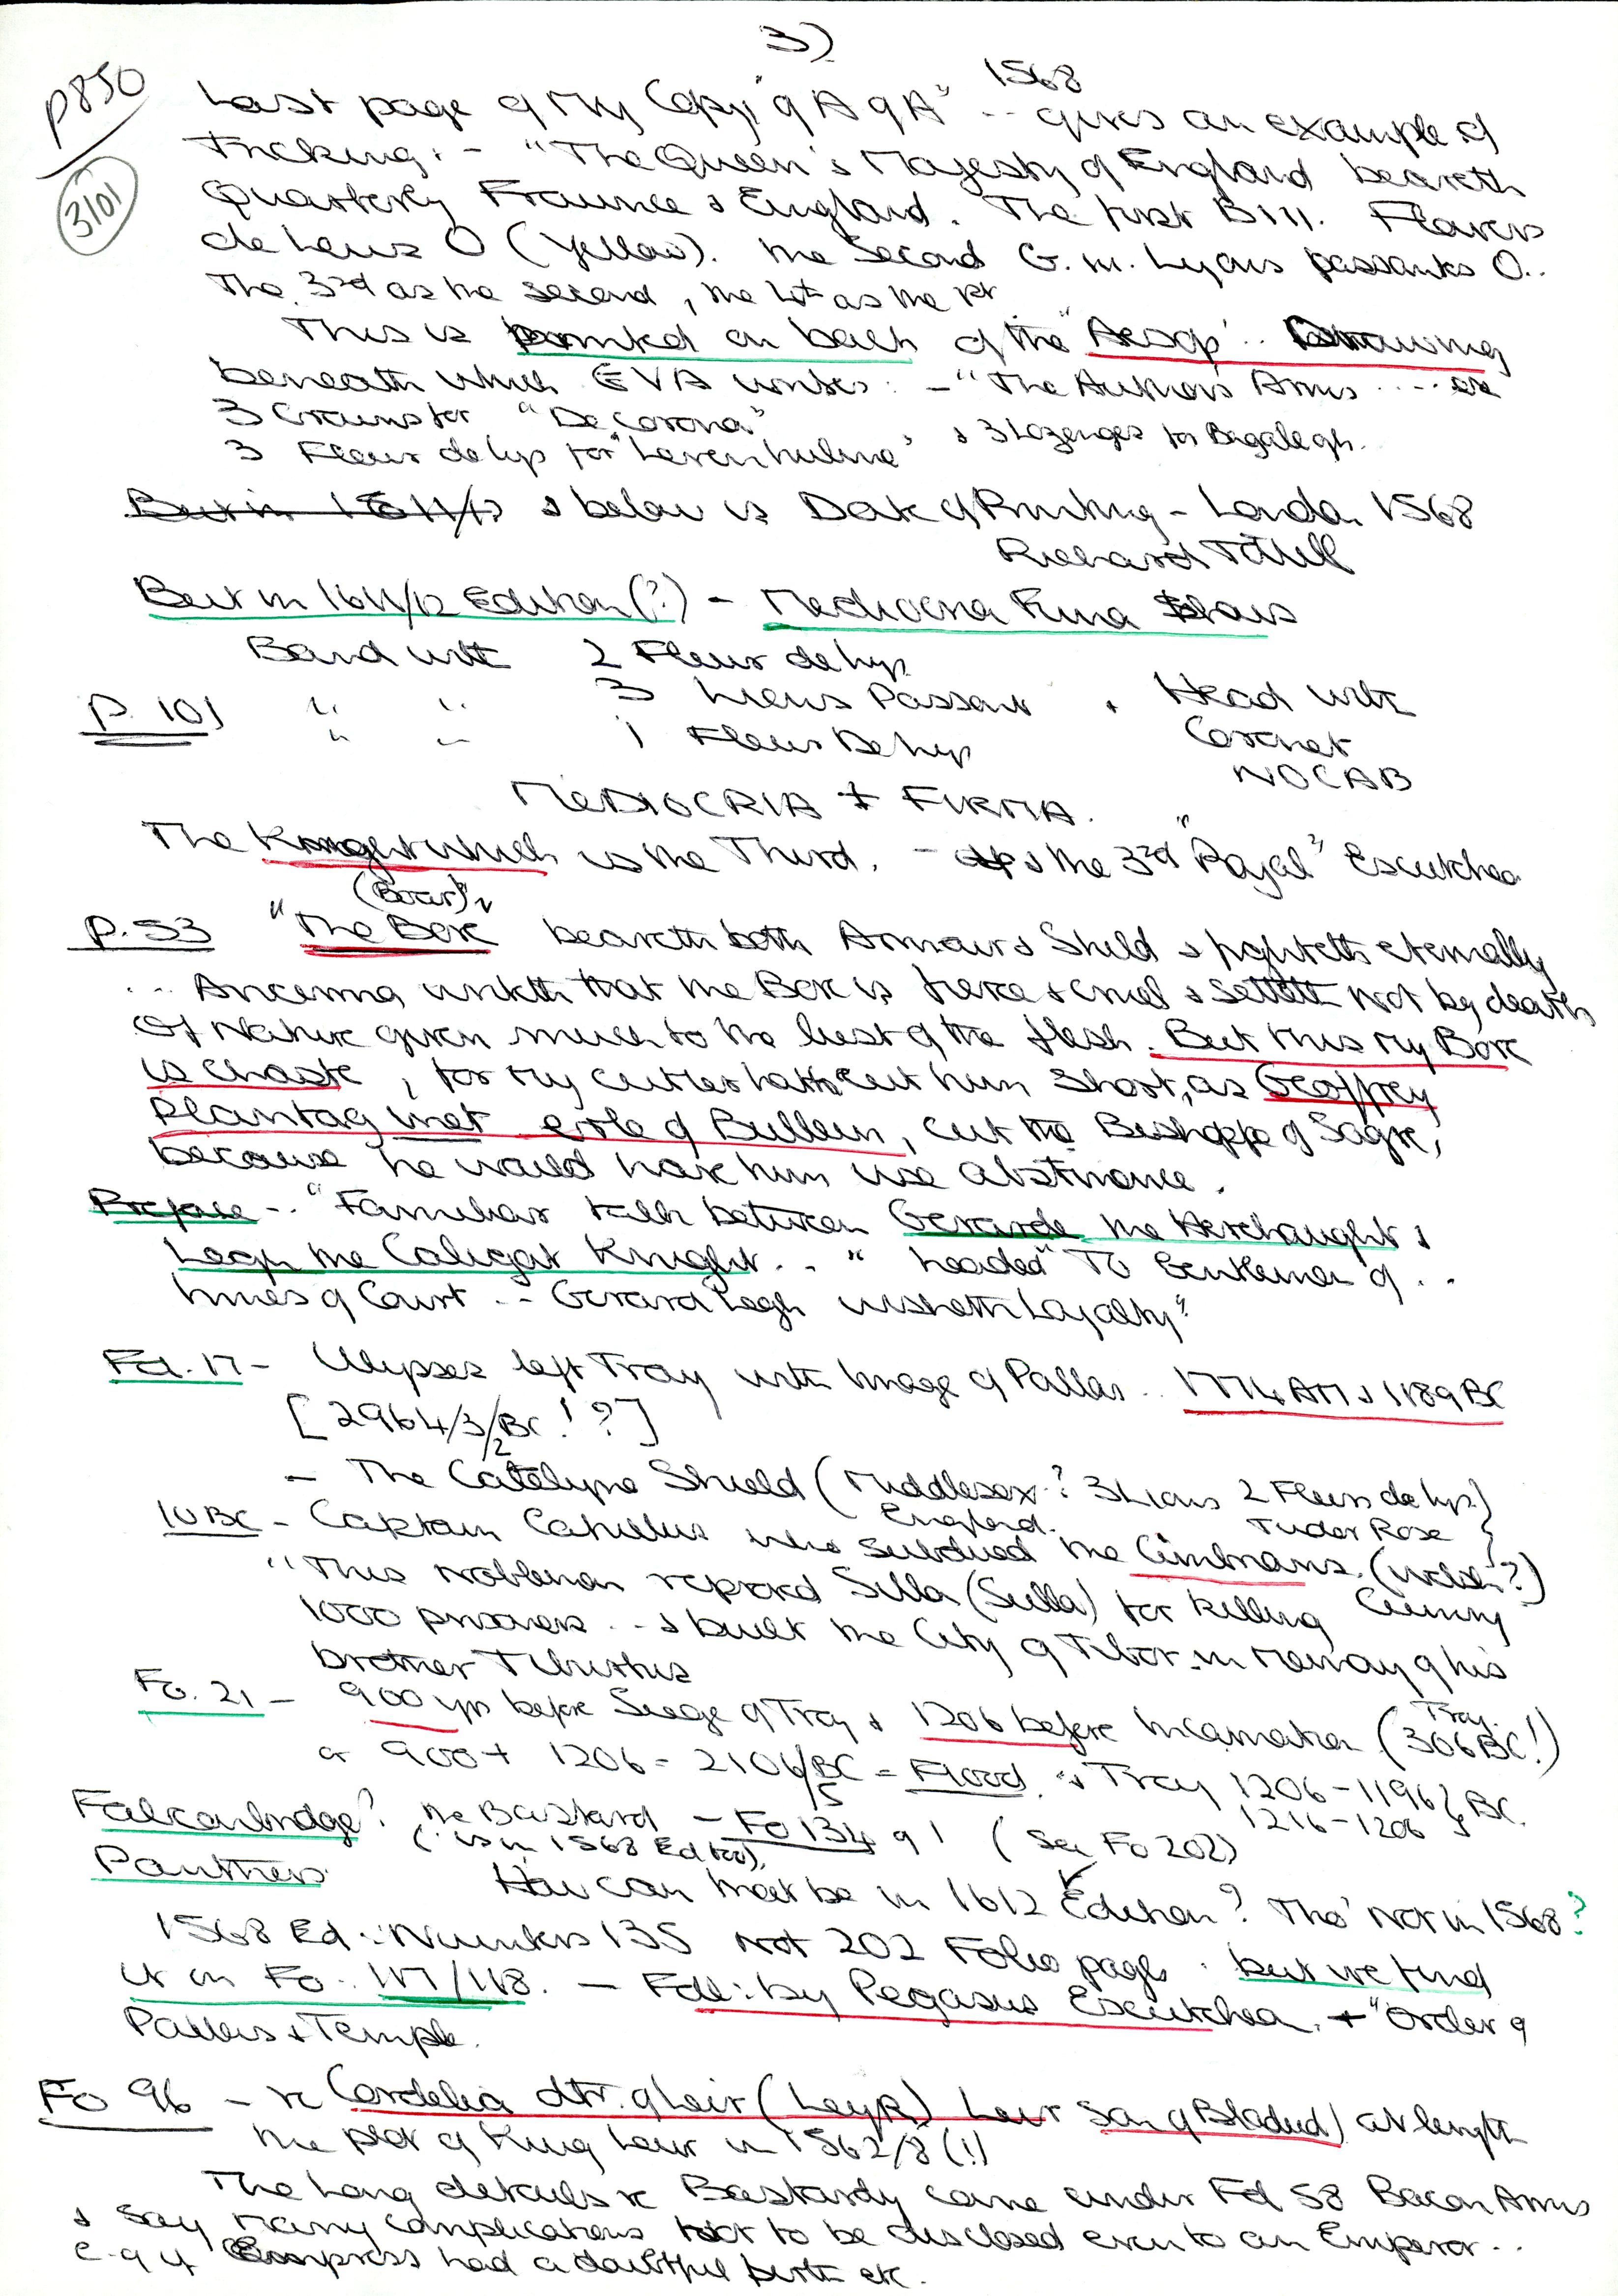 3)
P850
3101
Last page of My Copy "of A of A" 1568 -- gives an example of
Tricking :- "The Queen's Majesty of England beareth
Quarterly Fraunce & England. The first B m. Flowers
de Leuz O (Yellow). The Second G. m. Lyons passants O..
The 3rd as the second, the 4th as the 1st
This is printed on back of the "Aesop" .. Drawing
beneath which EVA writes :- "The Authors Arms .... are
3 Crowns for "De Corona"
3 Fleur de Lys for "Levenhulme" & 3 Lozenges for Bagalegh.
& below is Date of Printing - London 1568
Richard Tottell
But in 1611/12 Edition (?) - Mediocria Firma Shows
Band with 2 Fleur de Lys
P. 101 " " 3 Lions Passant , Head with
" " 1 Fleur De Lys Coronet
NOCAB
MEDIOCRIA + FIRMA.
The which is the Third. - & the 3rd "Royal" Escutcheon
(Boar)
P. 53 "The Bore beareth both Armour & Shield & fighteth eternally
... writeth that the Bore is fierce & cruel & setteth not by death
Of Nature given much to the lust of the flesh. But this My Bore
is chaste, for my cutler hath cut him short, as Geoffrey
Plantaginet erle of Bullein, cut the Bishoppe of Sagre,
because he would have him use abstinence.
Preface -. "Familiar talk between Gerarde the Herehaught &
Legh the Caligat Knight. .. " headed "To Gentlemen of ..
Innes of Court .. - Gerard Legh wisheth Loyalty"
Fol. 17 - Ulysses left Troy with Image of Pallas .. 1774 AM & 1189 BC
[2964/3/2 BC !?]
- The Catelyne Shield (Middlesex? 3 Lions 2 Fleurs de Lys}
England. Tudor Rose }
10 BC - Captain Catullus who subdued the Cimbrians. (Welsh?)
"This nobleman reproved Silla (Sulla) for killing Cumry
1000 prisoners .. & built the City of Tibor in Memory of his
brother Tiburtus
Fo. 21 - 900 yrs before Siege of Troy & 1206 before Incarnation (Troy 306 BC!)
or 900 + 1206 = 2106/5 BC = Flood. "& Troy 1206-1196 } BC.
1216-1206 }
Falconbridge? the Bastard - Fo 134 9! (See Fo 202)
(is in 1568 Ed too).
Panthers How can that be in 1612 Edition? Tho' not in 1568?
1568 Ed. Numbers 135 not 202 Folio pages . but we find
it on Fo. 117/118. - Foll: by Pegasus Escutcheon. + "Order of
Pallas & Temple.
Fo 96 - re Cordelia dtr. of Leir (LeyR) Leir son of Bladud) at length
the plot of King Leir in 1562/8 (!)
The long details re Bastardy come under Fol 58 Bacon Arms
& say many complications not to be disclosed even to an Emperor ..
e.g if Empress had a doubtful birth etc.